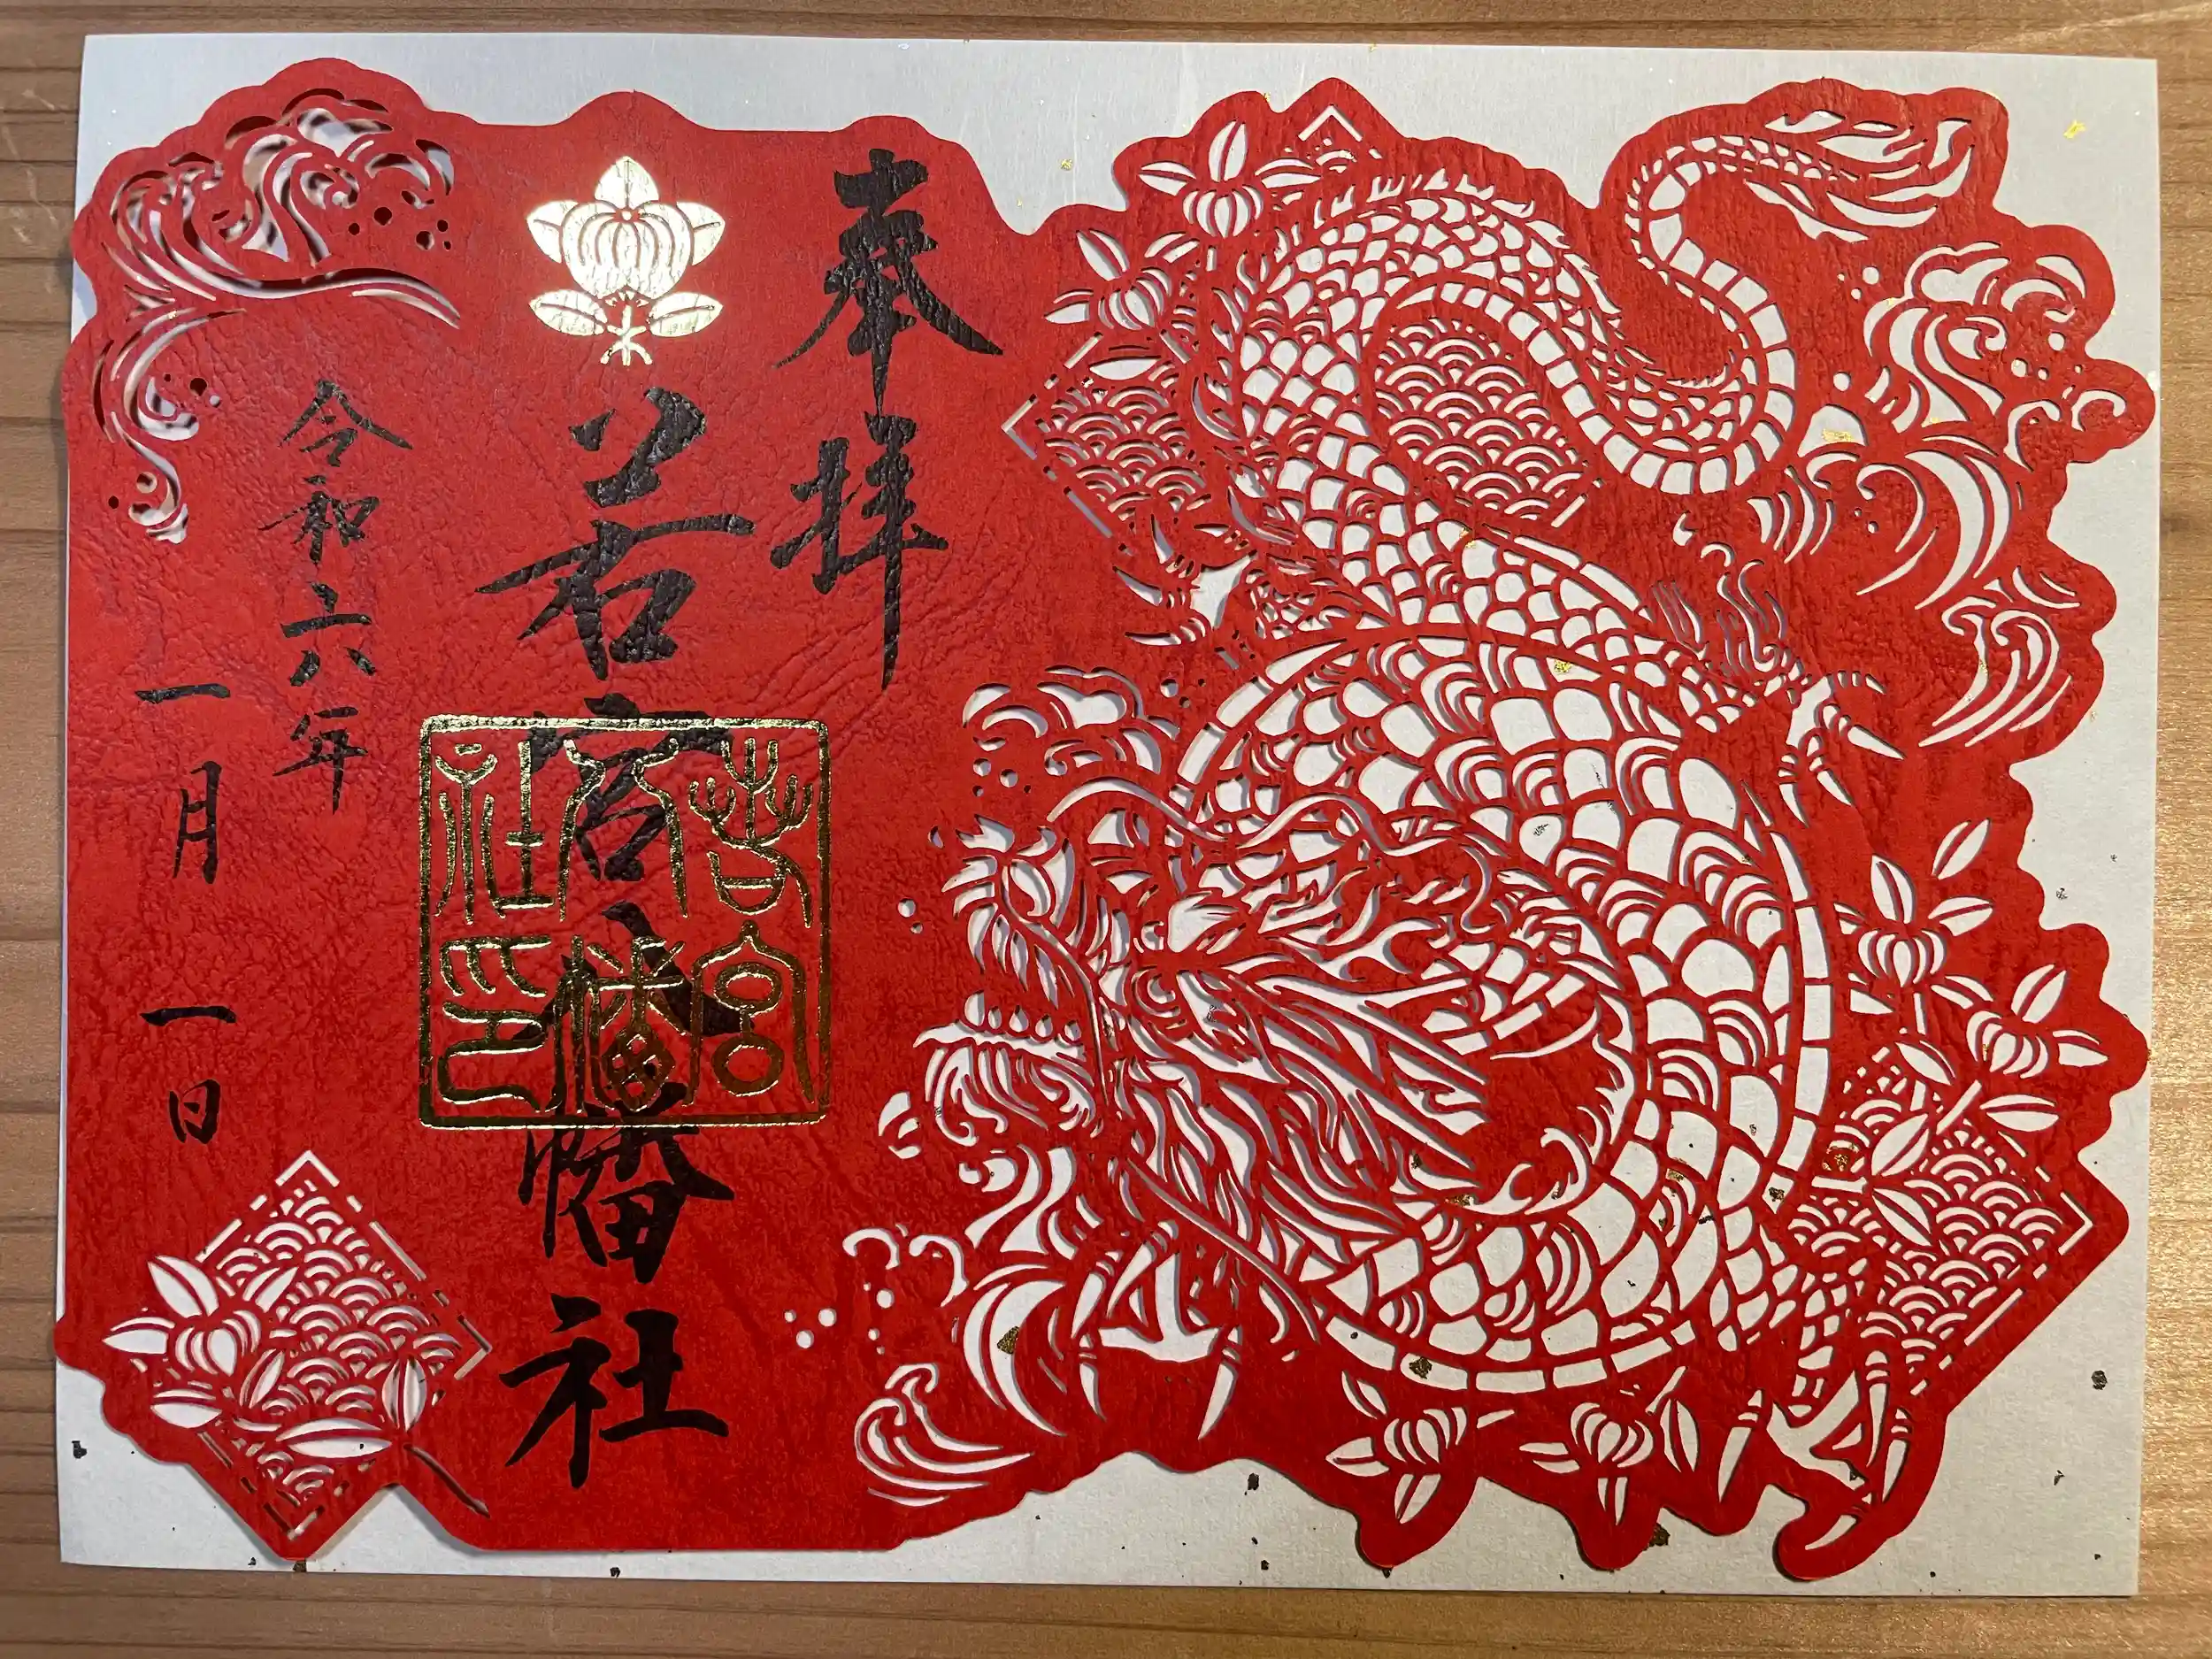 奉拝
若宮八幡社
若宮
八幡
社印
令和六年
一月一日